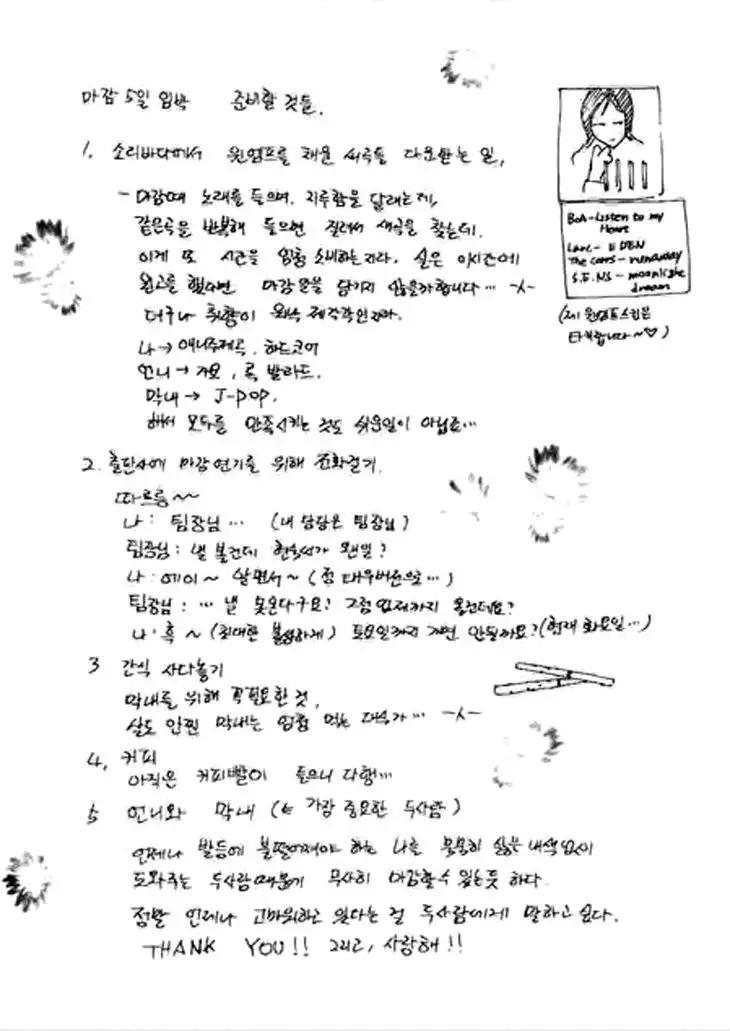 마감 5일 임박 준비할 것들.
1. 소리바다에서 윈엠프를 채운 새곡들 다운받는 일,
- 마감때 노래를 들으며, 지루함을 달래는데,
같은곡을 반복해 들으면 질려서 새곡을 찾는데,
이게 또 시간을 엄청 소비하는지라. 실은 이시간에
원고를 했다면 마감을 넘기지 않을까합니다… -ㅅ-
더구나 취향이 워낙 제각각인지라.
나→ 애니주제곡, 하드코어
언니→ 가요, 록 발라드.
막내→ J-POP.
해서 모두를 만족시키는 것도 쉬운일이 아닙죠…
2. 출판사에 마감 연기를 위해 전화걸기.
따르릉~~
나: 팀장님… (내 담당은 팀장님)
팀장님: 낼 볼건데 현숙씨가 웬일?
나: 에이~ 알면서~ (좀 대우버전으로…)
팀장님: … 낼 못온다구요? 그럼 언제까지 올건데요?
나: 흑~ (최대한 불쌍하게) 토요일까지 가면 안될까요? (현재 화요일…)
3 간식 사다놓기
막내를 위해 꼭필요한 것,
살도 안찐 막내는 엄청 먹는 대식가… -ㅅ-
4. 커피
아직은 커피빨이 들으니 다행…
5 언니와 막내 (← 가장 중요한 두사람)
언제나 발등에 불떨어져야 하는 나를 묵묵히 싫은 내색없이
도와주는 두사람때문에 무사히 마감할수 있는듯 하다.
정말 언제나 고마워하고 있다는 걸 두사람에게 말하고 싶다.
THANK YOU!! 그리고, 사랑해!!
BoA-Listen to my
Heart
Larc-
The corrs - runaway
S.E.NS - moonlight
dream
(제 윈엠프스킨은
타카랍니다~♡)